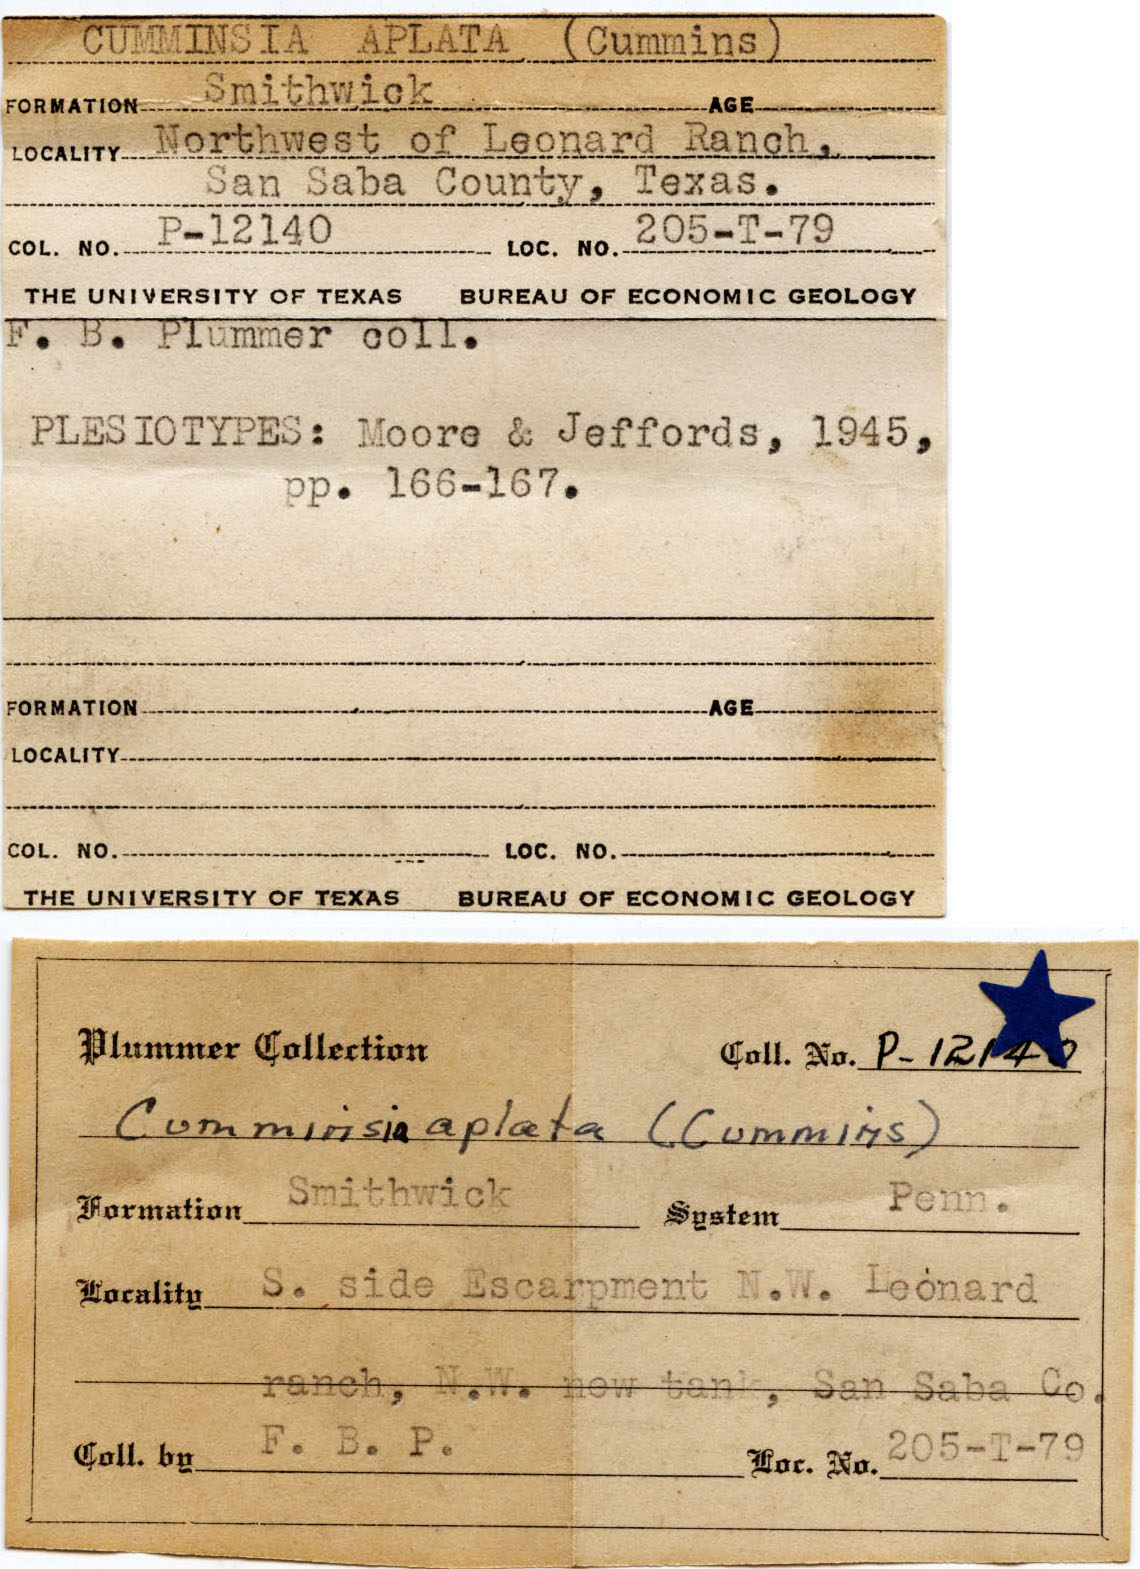 CUMMINSIA APLATA (Cummins)
FORMATION Smithwick AGE
LOCALITY Northwest of Leonard Ranch,
San Saba County, Texas.
COL. NO. P-12140 LOC. NO. 205-T-79
THE UNIVERSITY OF TEXAS BUREAU OF ECONOMIC GEOLOGY
F. B. Plummer coll.
PLESIOTYPES: Moore & Jeffords, 1945,
pp. 166-167.
FORMATION AGE
LOCALITY
COL. NO. LOC. NO.
THE UNIVERSITY OF TEXAS BUREAU OF ECONOMIC GEOLOGY
Plummer Collection Coll. No. P-12140
Cumminsia aplata (Cummins)
Formation Smithwick System Penn.
Locality S. side Escarpment N.W. Leonard
ranch, N.W. new tank, San Saba Co.
Coll. by F. B. P. Loc. No. 205-T-79